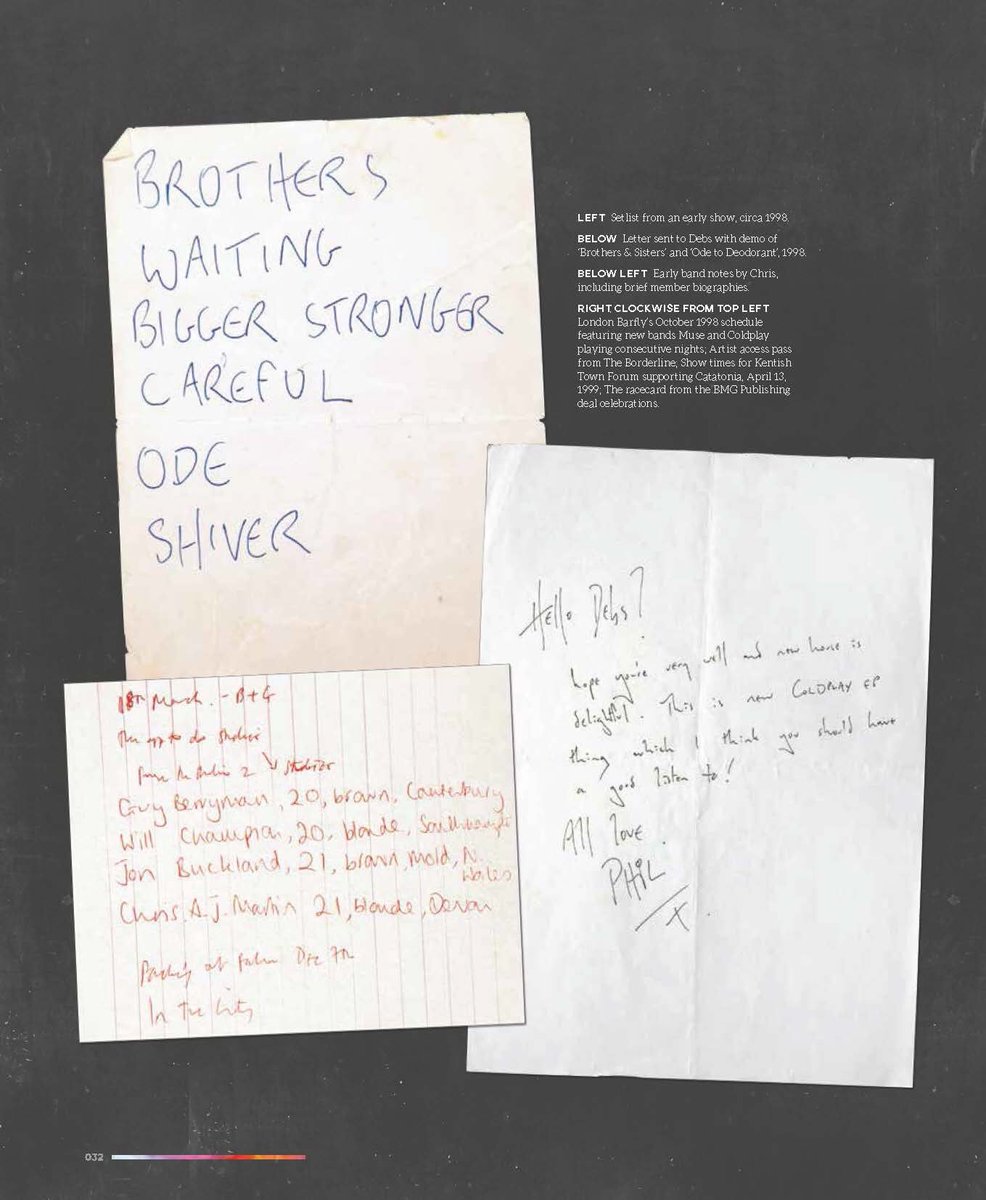 BROTHERS
WAITING
BIGGER STRONGER
CAREFUL
ODE
SHIVER
LEFT Setlist from an early show, circa 1998.
BELOW Letter sent to Debs with demo of
‘Brothers & Sisters’ and ‘Ode to Deodorant’, 1998.
BELOW LEFT Early band notes by Chris,
including brief member biographies.
RIGHT, CLOCKWISE FROM TOP LEFT
London Barfly's October 1998 schedule
featuring new bands Muse and Coldplay
playing consecutive nights; Artist access pass
from The Borderline; Show times for Kentish
Town Forum supporting Catatonia, April 13,
1999; The racecard from the BMG Publishing
deal celebrations.
Hello Debs?
hope you're very well and new house is
delightful. This is new COLDPLAY EP
thing which I think you should have
a good listen to!
All love.
PHIL
x
18th March. - B+G
to do
2
Guy Berryman, 20, brown, Canterbury
Will Champion, 20, blonde, Southampton
Jon Buckland, 21, brown, Mold, N.
Wales
Chris. A.J. Martin 21, blonde, Devon
at Dec 7th
In the City
032